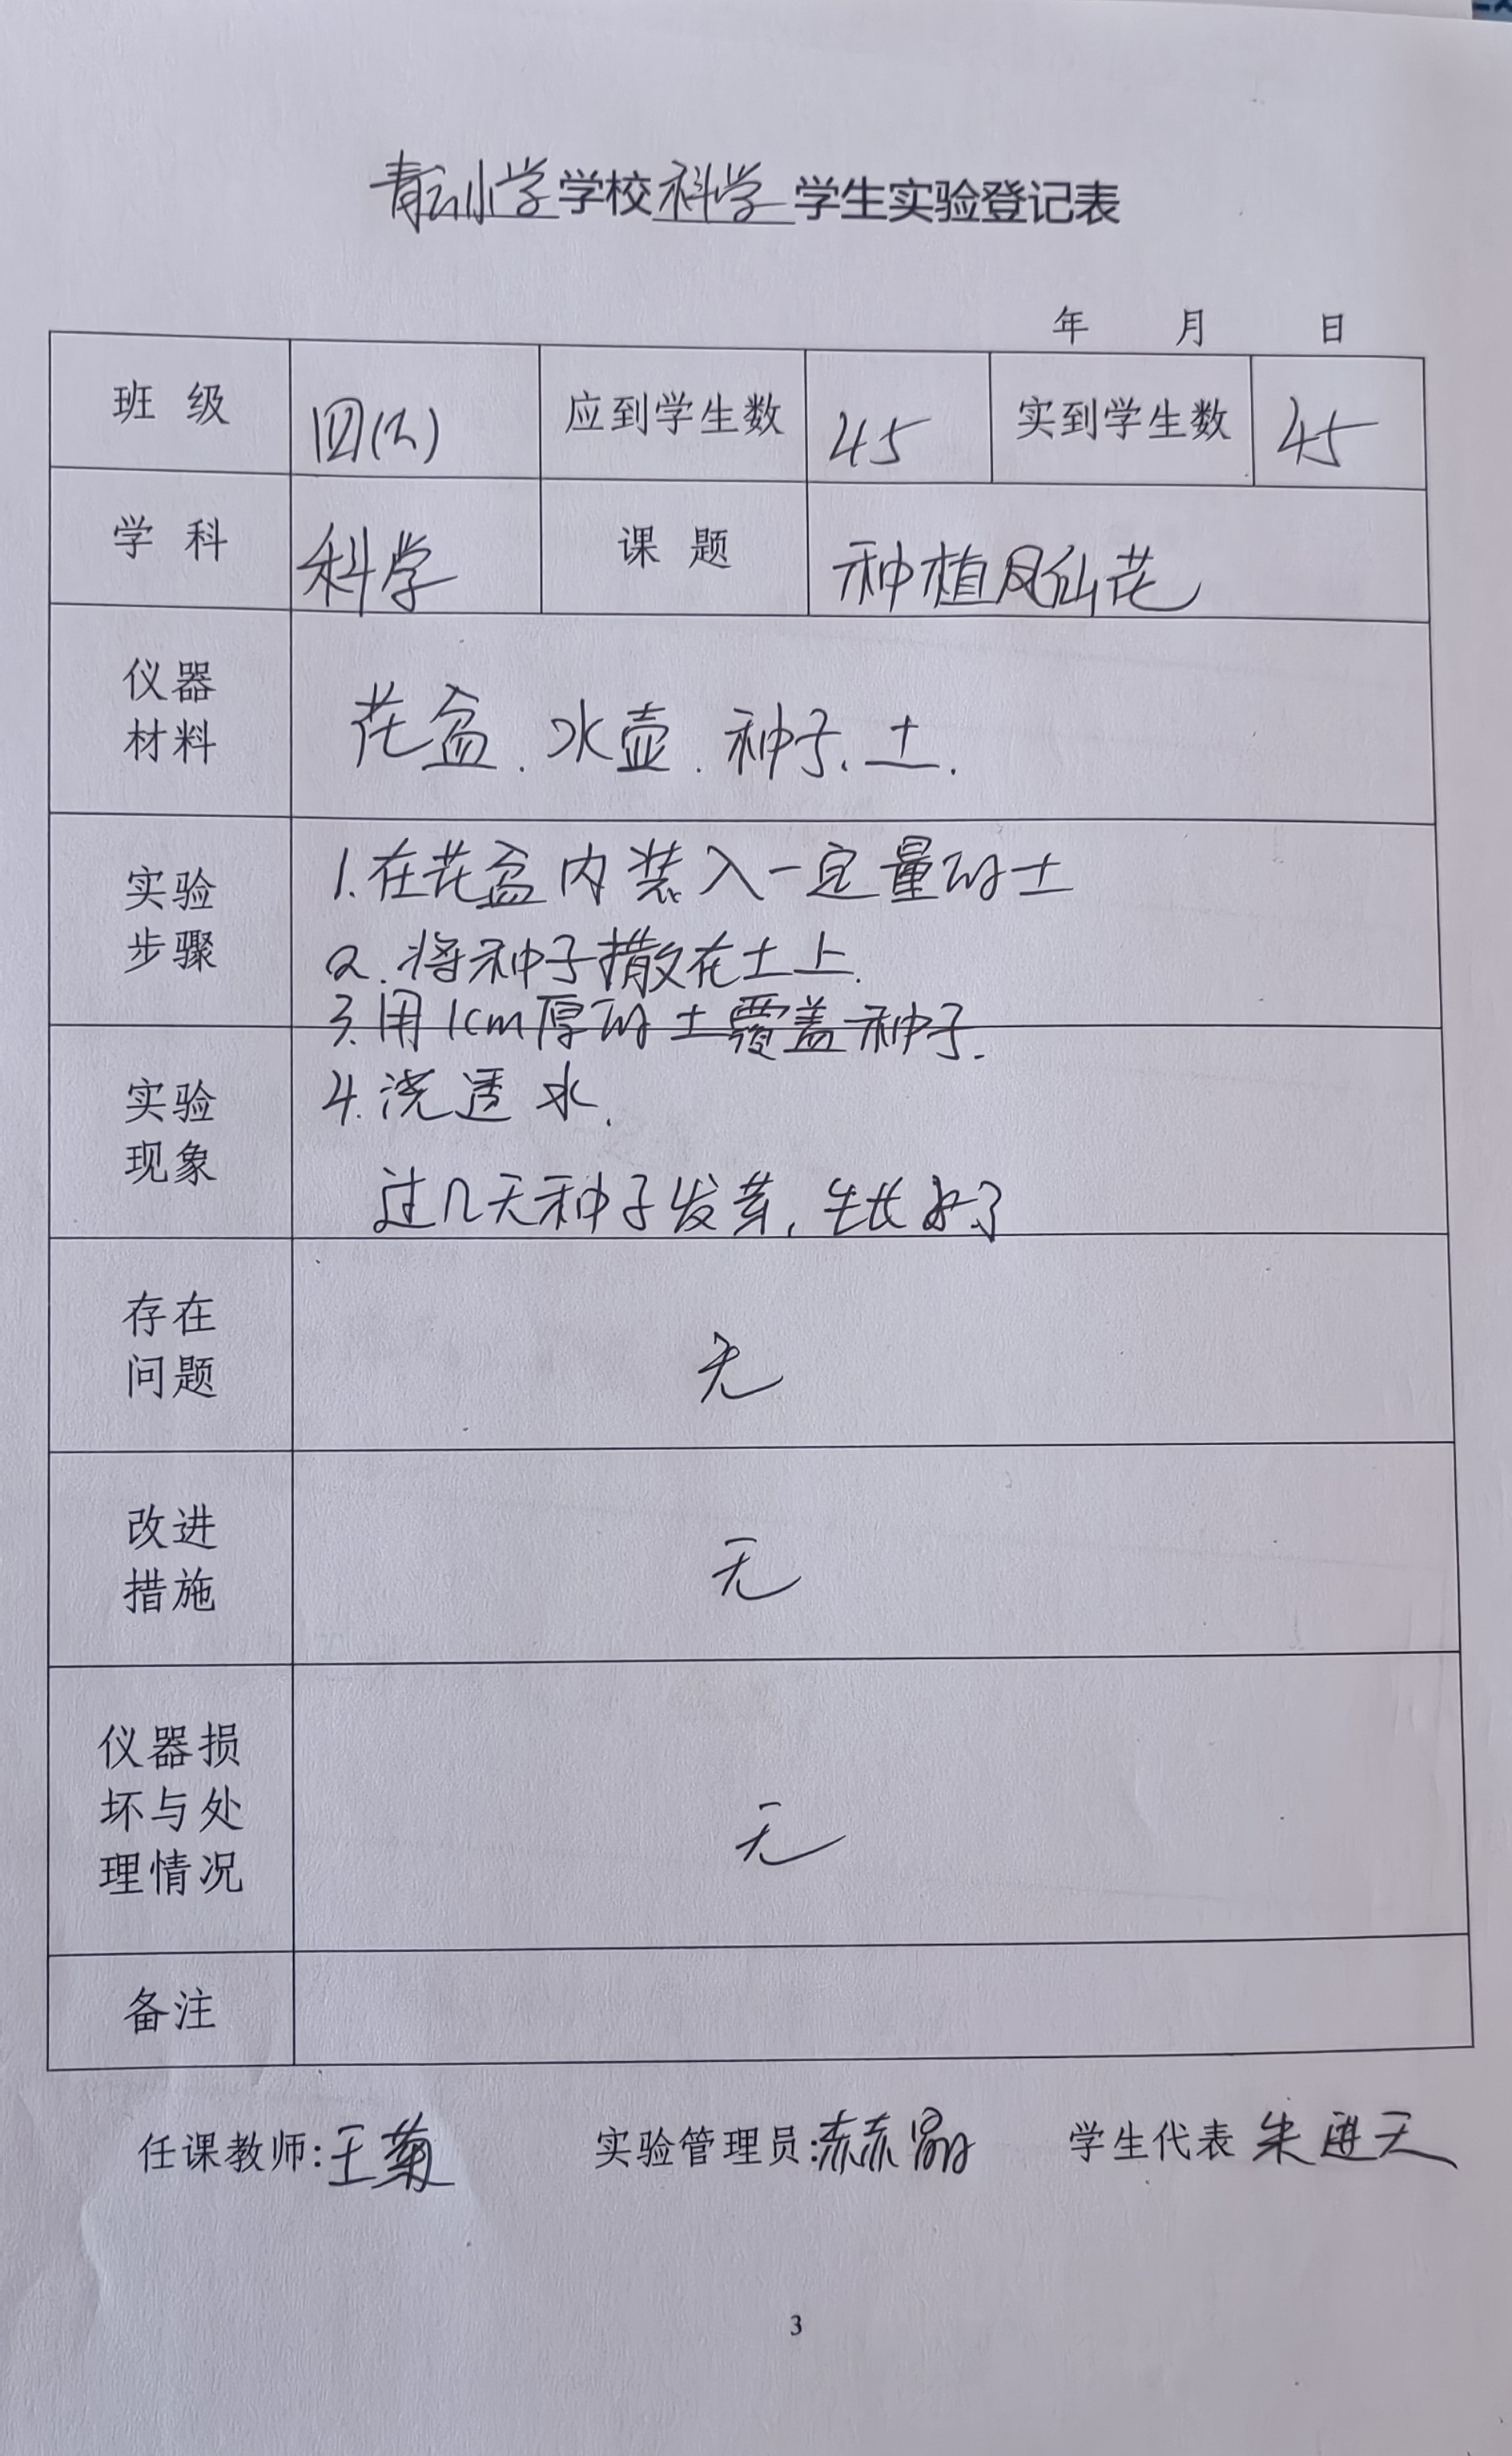 青云小学学校科学学生实验登记表
年 月 日
班 级 四(2) 应到学生数 45 实到学生数 45
学 科 科学 课 题 种植凤仙花
仪器
材料
花盆、水壶、种子、土.
实验
步骤
1.在花盆内装入一定量的土
2.将种子撒在土上.
3.用1cm厚的土覆盖种子.
实验
现象
4.浇透水.
过几天种子发芽,生长
存在
问题
无
改进
措施
无
仪器损
坏与处
理情况
无
备注
任课教师:王菊 实验管理员: 学生代表 朱进天
3